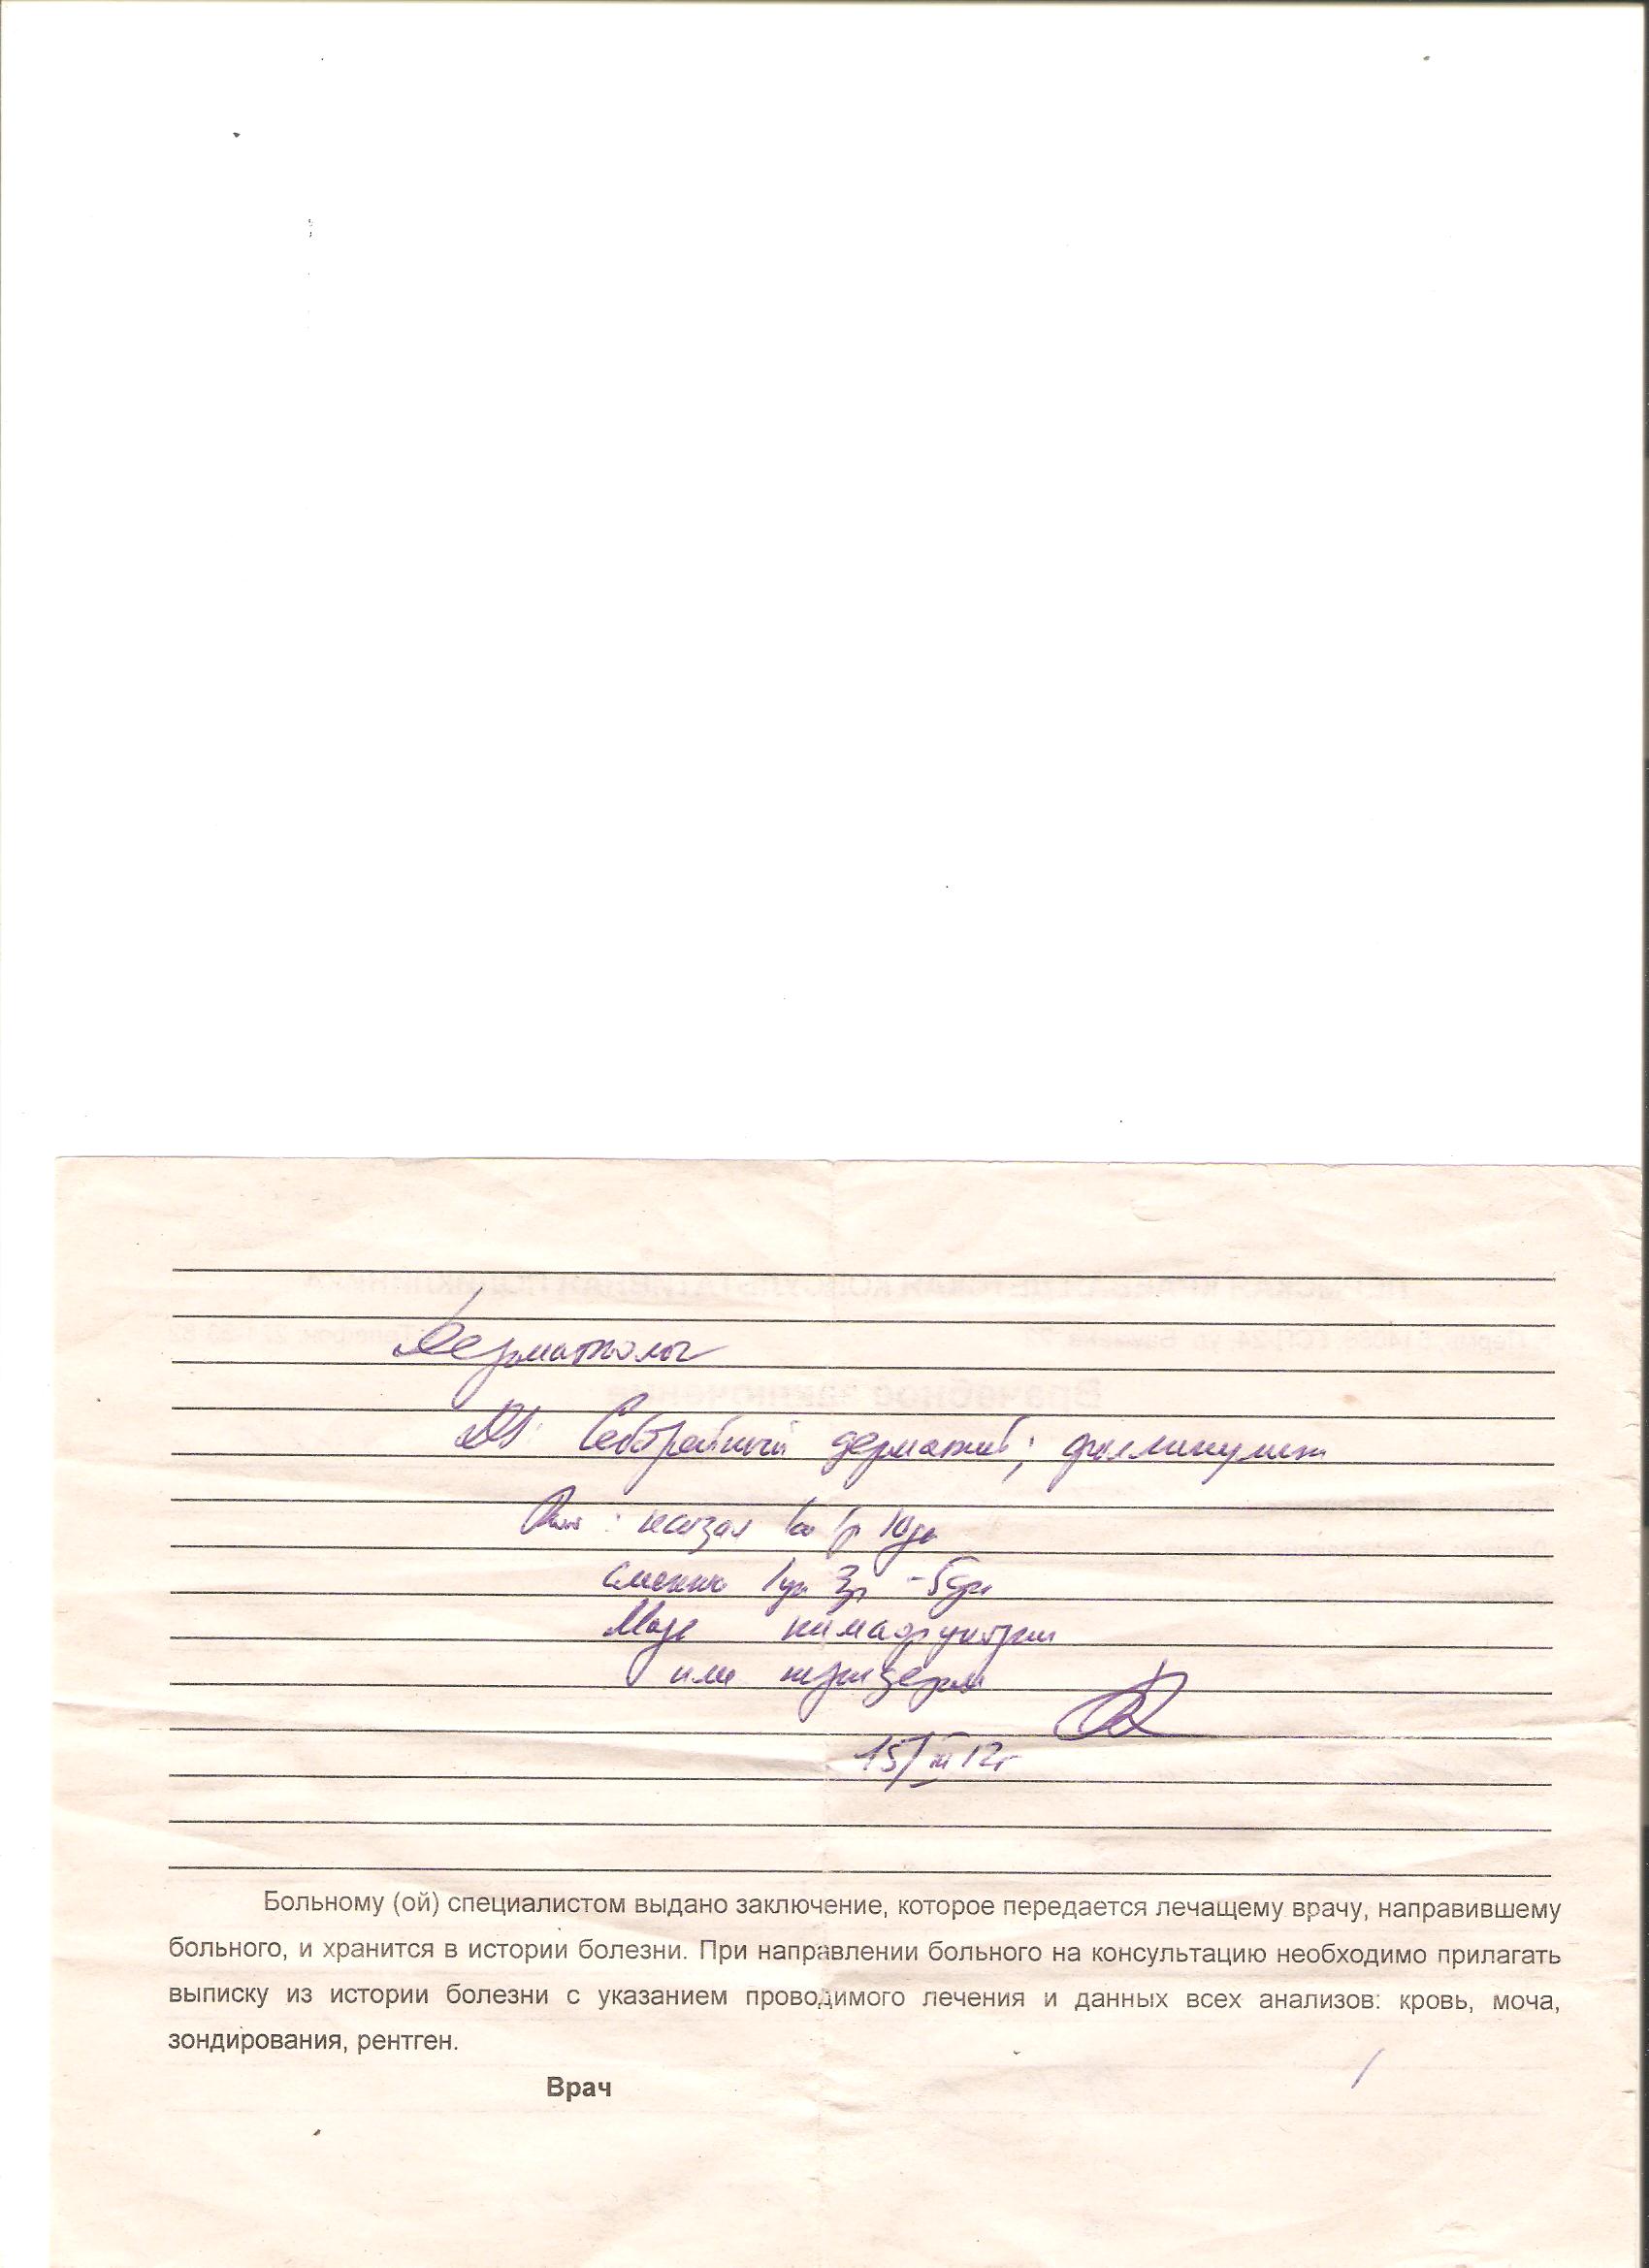 Дерматолог
Ds: Себорейный дерматит; фолликулит
: 1р
3р - 5дн
Мазь пимафукорт
или тридерм
15/III 12г
Больному (ой) специалистом выдано заключение, которое передается лечащему врачу, направившему
больного, и хранится в истории болезни. При направлении больного на консультацию необходимо прилагать
выписку из истории болезни с указанием проводимого лечения и данных всех анализов: кровь, моча,
зондирования, рентген.
Врач